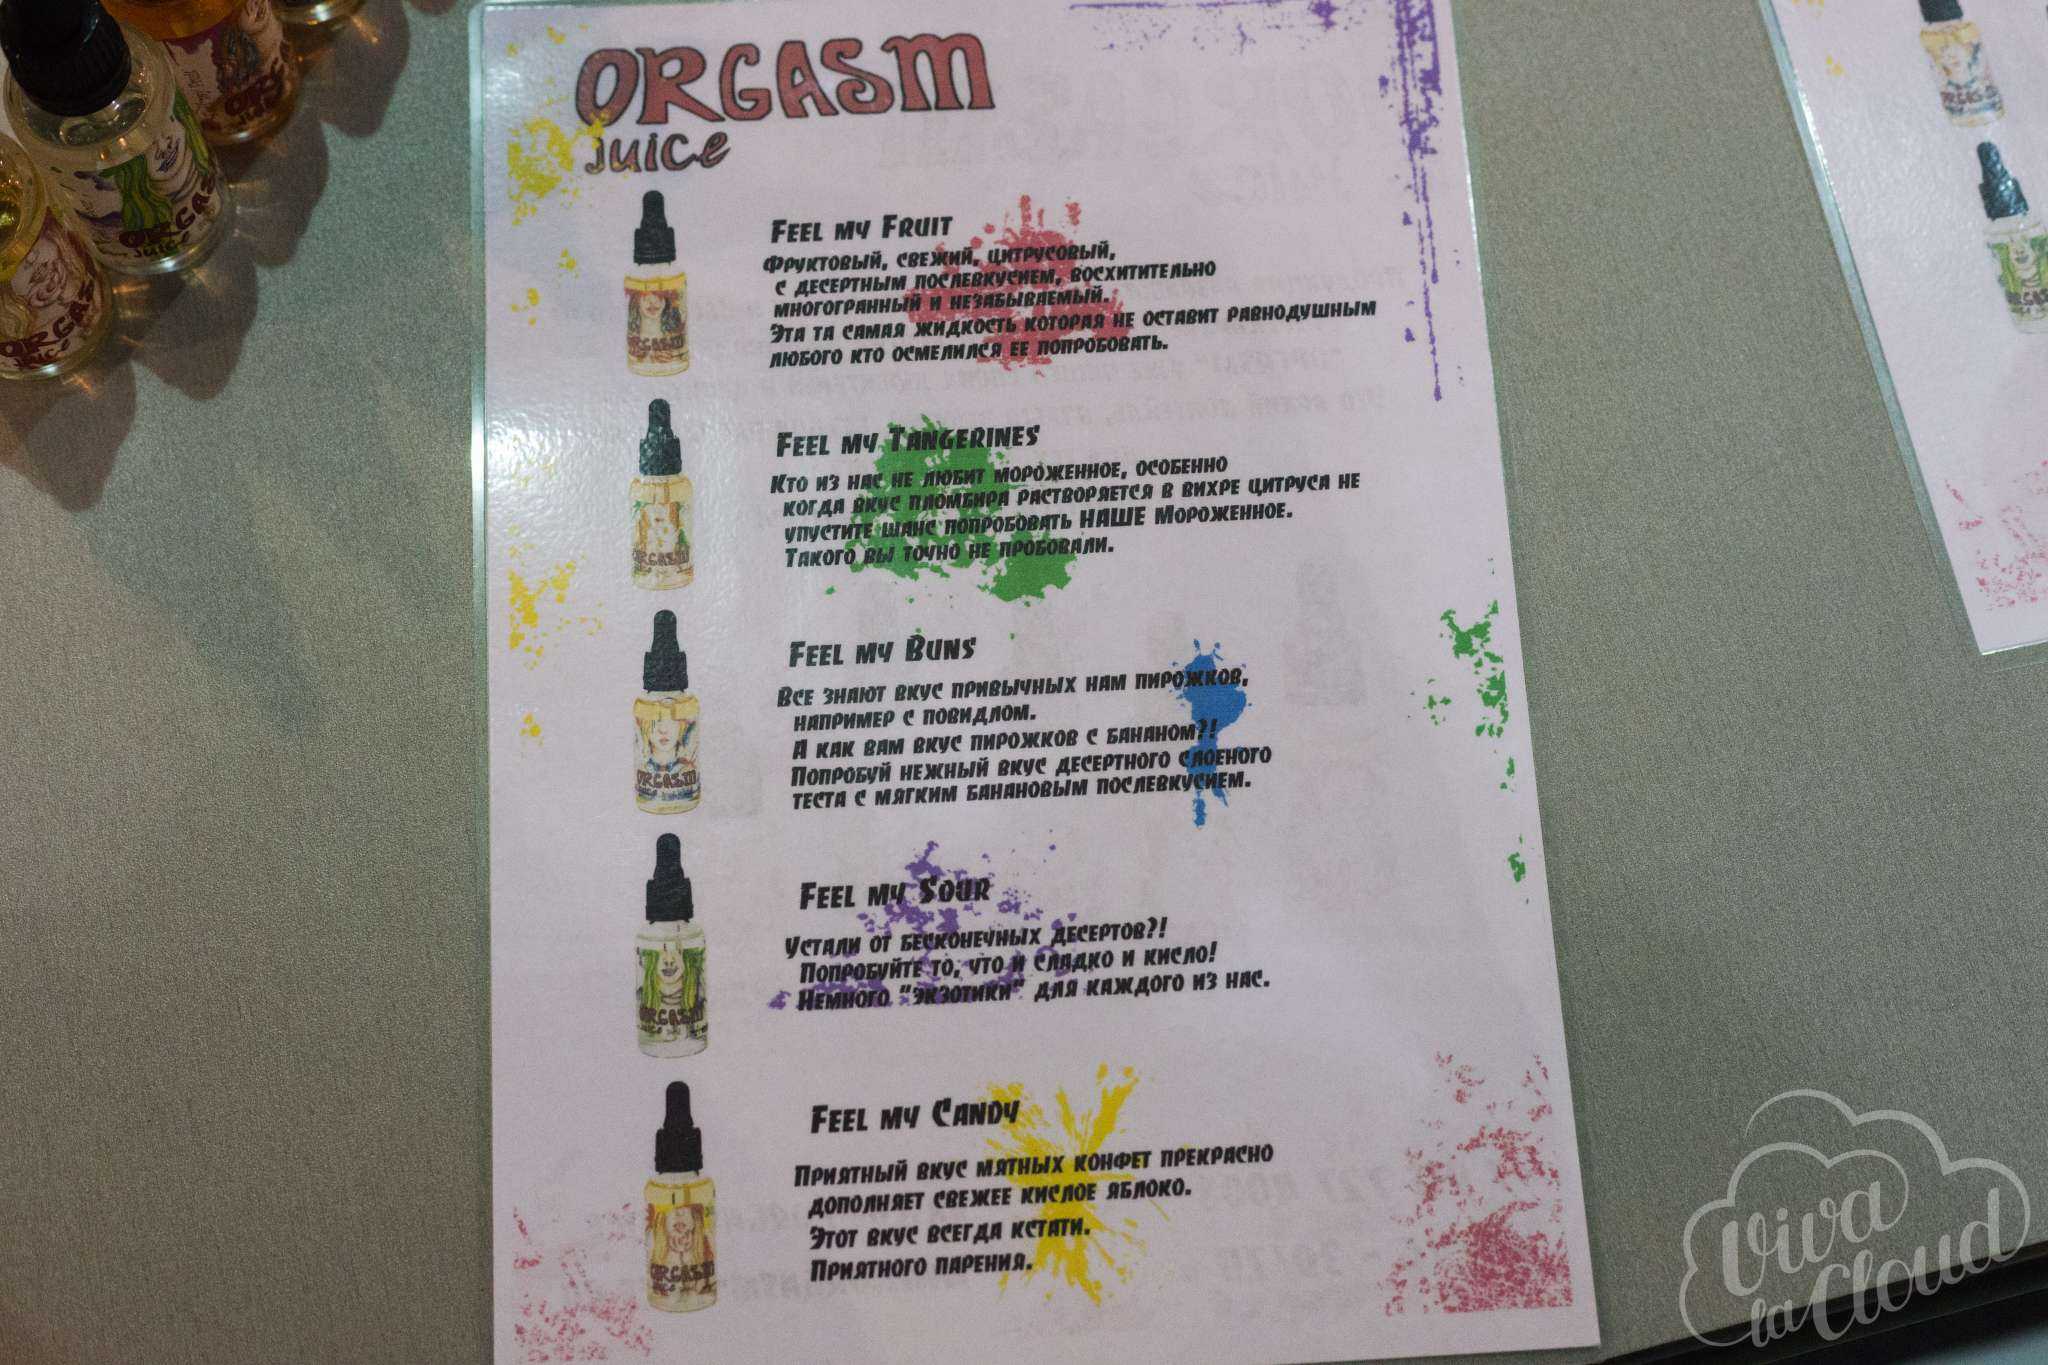 ORGASM
juice
Feel my Fruit
Фруктовый, свежий, цитрусовый,
с десертным послевкусием, восхитительно
многогранный и незабываемый.
Эта та самая жидкость которая не оставит равнодушным
любого кто осмелился ее попробовать.
Feel my Tangerines
Кто из нас не любит мороженное, особенно
когда вкус пломбира растворяется в вихре цитруса не
упустите шанс попробовать НАШЕ Мороженное.
Такого вы точно не пробовали.
Feel my Buns
Все знают вкус привычных нам пирожков,
например с повидлом.
А как вам вкус пирожков с бананом?!
Попробуй нежный вкус десертного слоеного
теста с мягким банановым послевкусием.
Feel my Sour
Устали от бесконечных десертов?!
Попробуйте то, что и сладко и кисло!
Немного "экзотики" для каждого из нас.
Feel my Candy
Приятный вкус мятных конфет прекрасно
дополняет свежее кислое яблоко.
Этот вкус всегда кстати.
Приятного парения.
ORGASM
juice
Viva
la Cloud